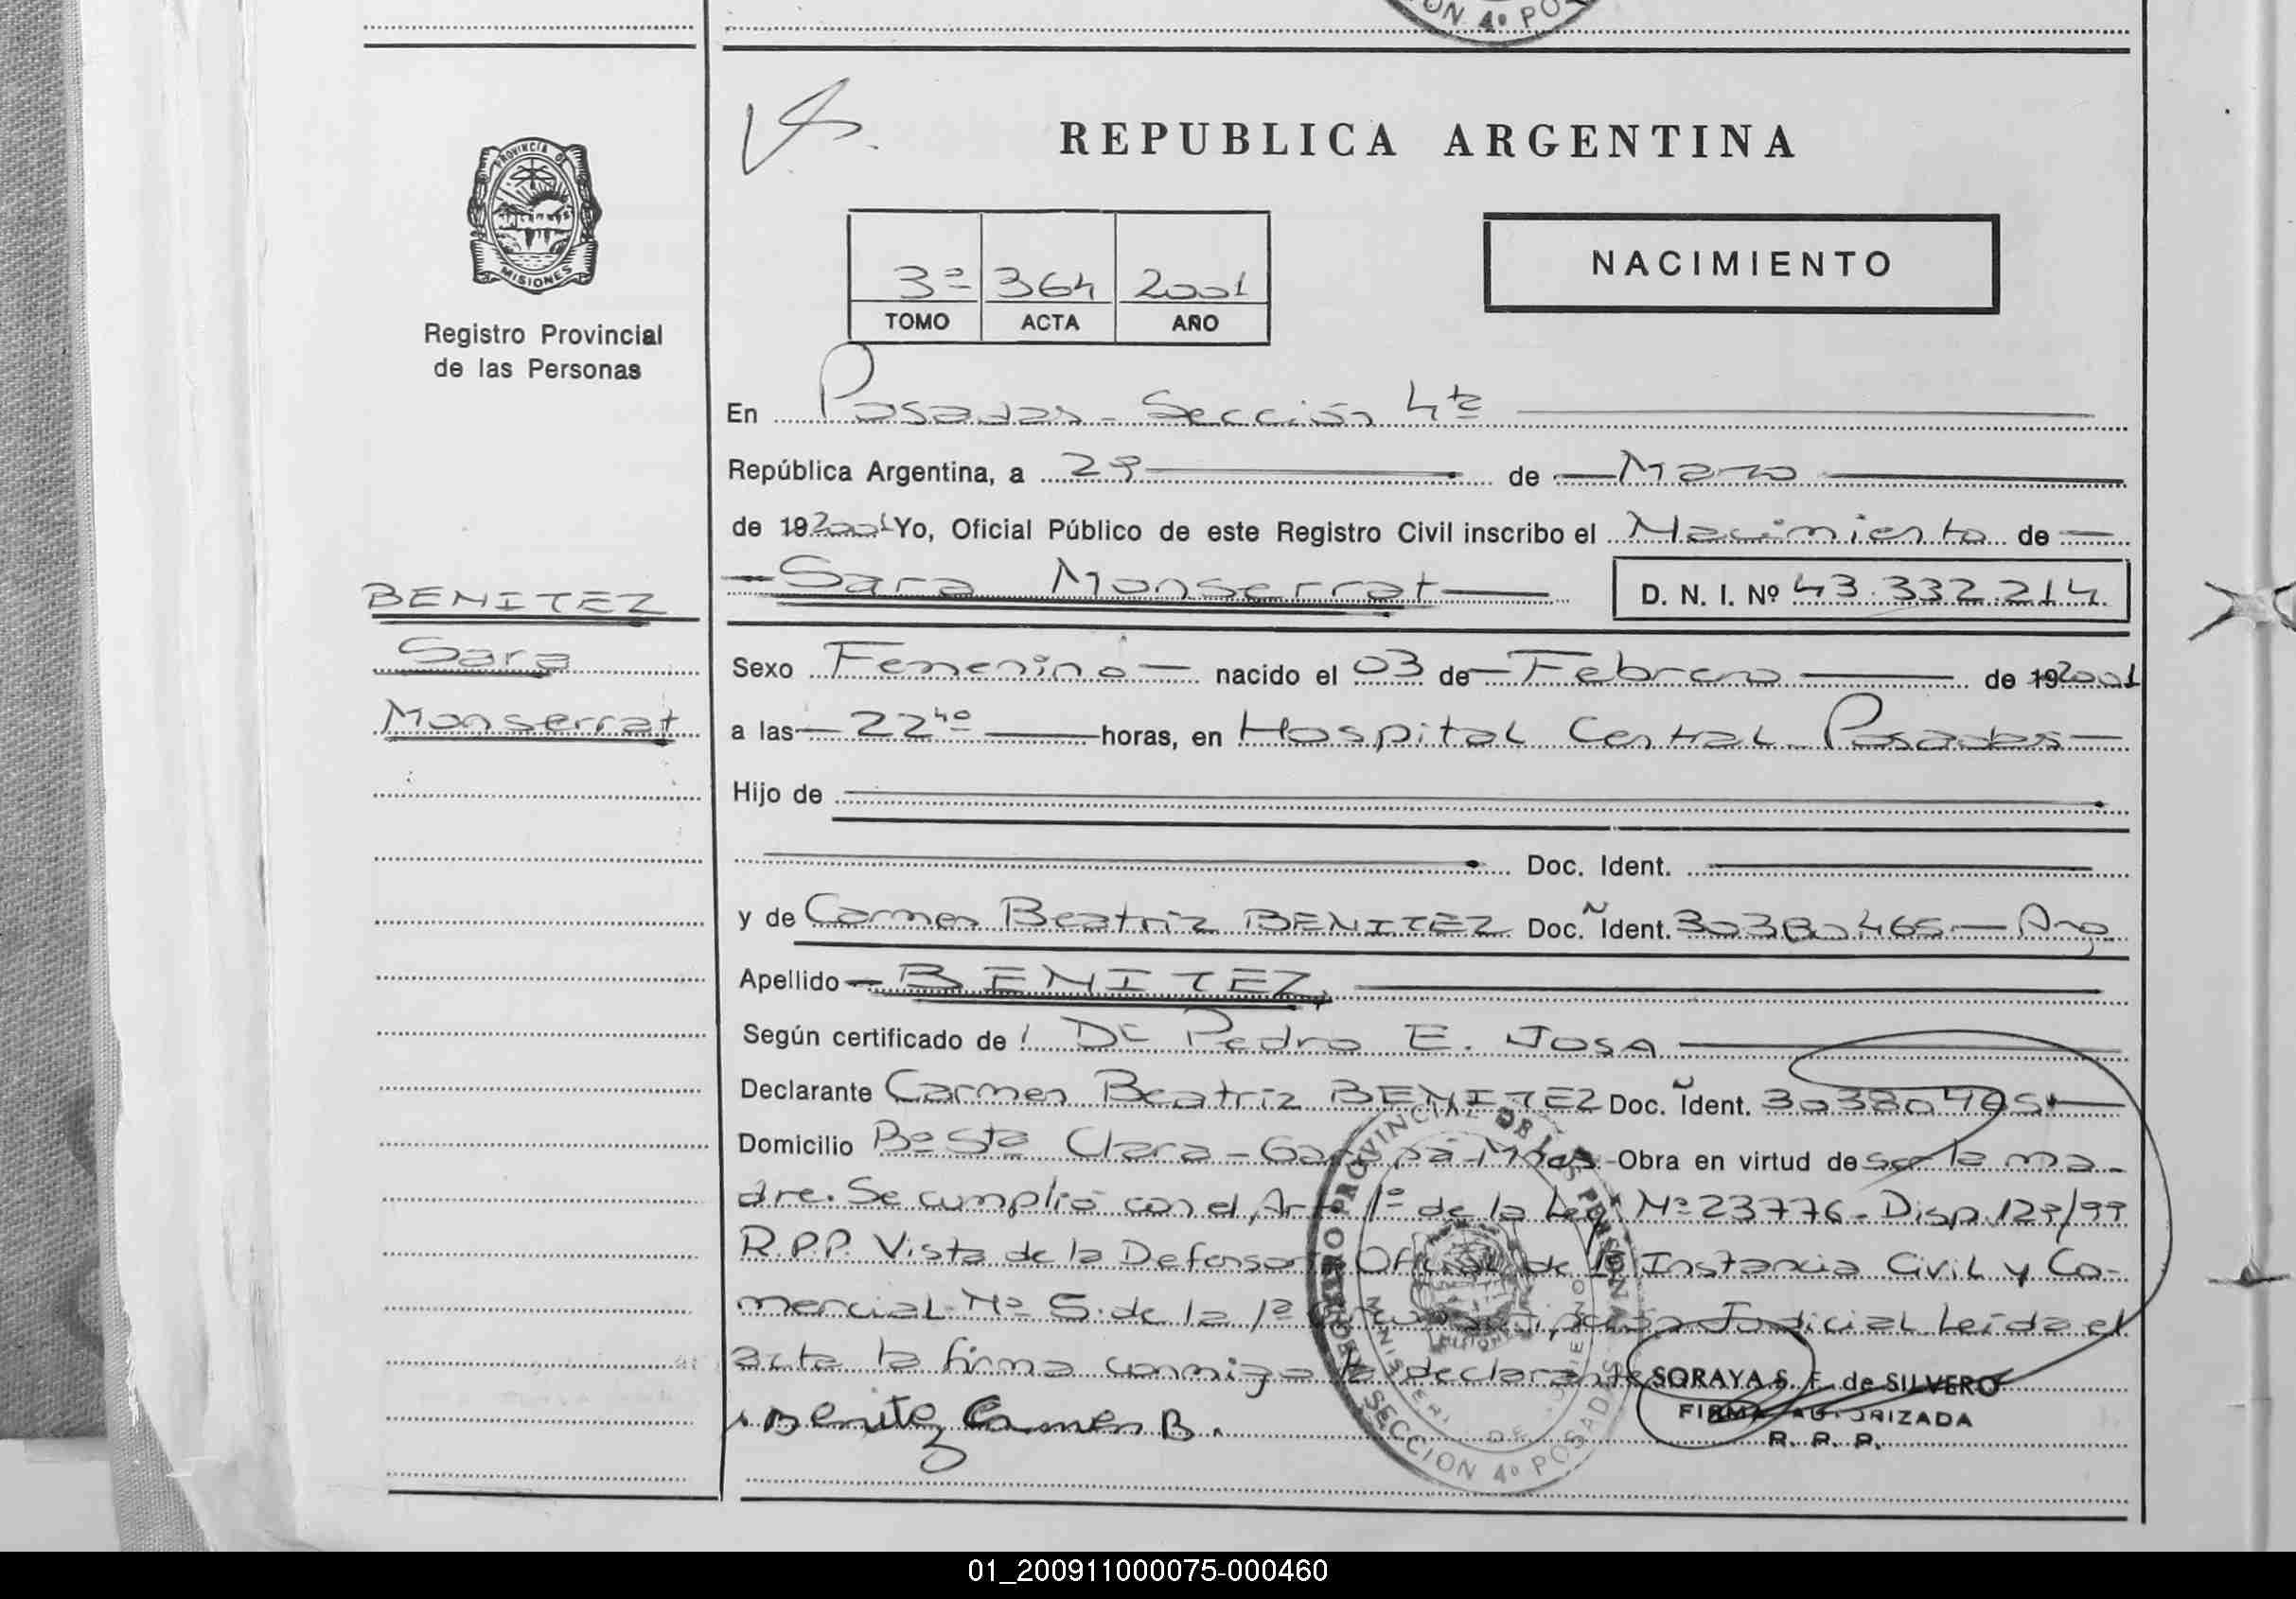 ON 4º PO
PROVINCIA DE
MISIONES
Registro Provincial
de las Personas
BENITEZ
Sara
Monserrat
REPUBLICA ARGENTINA
3º 364 2001
TOMO ACTA AÑO
NACIMIENTO
En Posadas - Sección 4ta
República Argentina, a 29 de Marzo
de 19 2001 Yo, Oficial Público de este Registro Civil inscribo el Nacimiento de
Sara Monserrat D. N. I. Nº 43.332.214
Sexo Femenino nacido el 03 de Febrero de 19 2001
a las 22 40 horas, en Hospital Central Posadas
Hijo de
Doc. Ident.
y de Carmen Beatriz BENITEZ Doc. Ident. 30380465 - Arg.
Apellido BENITEZ
Según certificado de Dr Pedro E. JOSA
Declarante Carmen Beatriz BENITEZ Doc. Ident. 30380465
Domicilio Bº Sta Clara - Garupá - Mnes Obra en virtud de ser la ma-
dre. Se cumplió con el Art. 1º de la Ley Nº 23776 - Disp. 129/99
R.P.P. Vista de la Defensoría Oficial de 1º Instancia Civil y Co-
mercial Nº 5 de la 1ª Circunscripción Judicial. Leída el
acta la firma conmigo la declarante
SORAYA S. F. de SILVERO
Benitez Carmen B.
FIRMA AUTORIZADA
R. P. P.
REGISTRO PROVINCIAL DE LAS PERSONAS
MINISTERIO DE GOBIERNO
SECCION 4º POSADAS
01_200911000075-000460